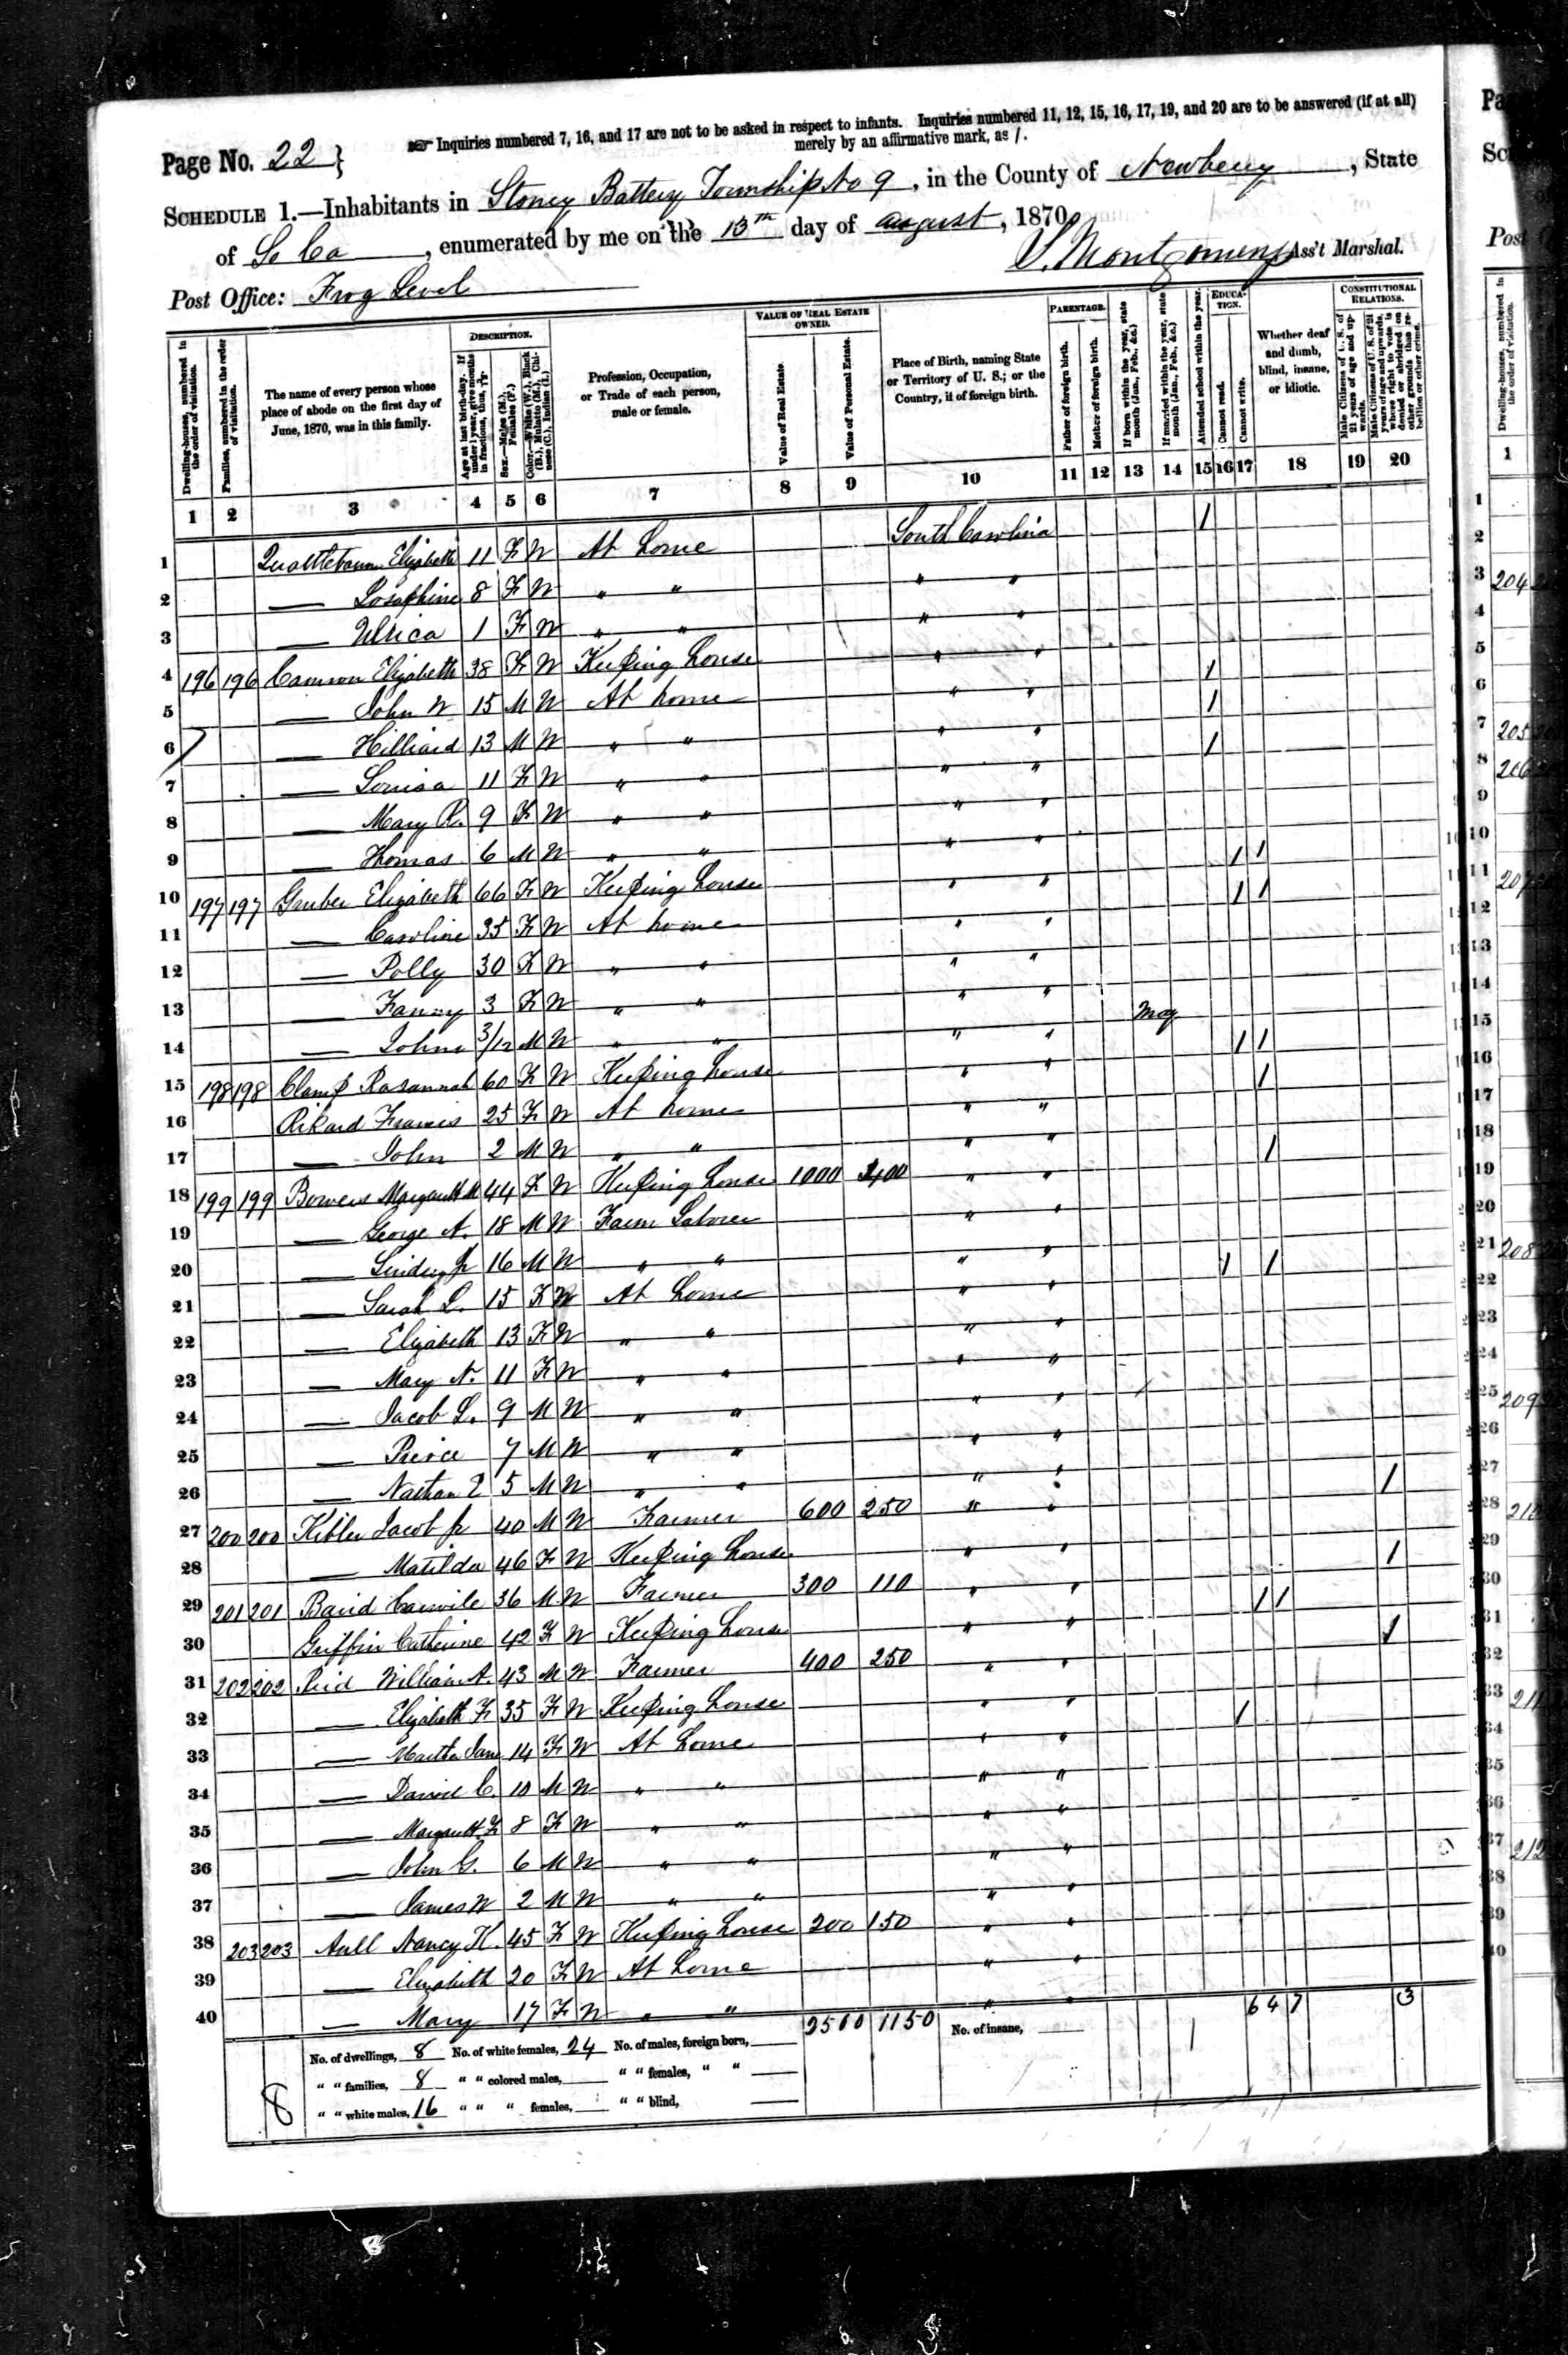 Page No. 22 }
☞ Inquiries numbered 7, 16, and 17 are not to be asked in respect to infants. Inquiries numbered 11, 12, 15, 16, 17, 19, and 20 are to be answered (if at all)
merely by an affirmative mark, as /.
SCHEDULE 1.—Inhabitants in Stoney Battery Township No 9, in the County of Newberry, State
of So Ca, enumerated by me on the 13th day of August, 1870.
Post Office: Frog Level
S. Montgomery Ass't Marshal.
Dwelling-houses, numbered in the order of visitation.
Families, numbered in the order of visitation.
The name of every person whose place of abode on the first day of June, 1870, was in this family.
DESCRIPTION.
Age at last birth-day. If under 1 year, give months in fractions, thus, 3/12.
Sex.—Males (M.), Females (F.)
Color.—White (W.), Black (B.), Mulatto (M.), Chinese (C.), Indian (I.)
Profession, Occupation, or Trade of each person, male or female.
VALUE OF REAL ESTATE OWNED.
Value of Real Estate.
Value of Personal Estate.
Place of Birth, naming State or Territory of U. S.; or the Country, if of foreign birth.
PARENTAGE.
Father of foreign birth.
Mother of foreign birth.
If born within the year, state month (Jan., Feb., &c.)
If married within the year, state month (Jan., Feb., &c.)
Attended school within the year.
EDUCATION.
Cannot read.
Cannot write.
Whether deaf and dumb, blind, insane, or idiotic.
CONSTITUTIONAL RELATIONS.
Male Citizens of U. S. of 21 years of age and upwards.
Male Citizens of U. S. of 21 years of age and upwards, whose right to vote is denied or abridged on other grounds than rebellion or other crime.
1 2 3 4 5 6 7 8 9 10 11 12 13 14 15 16 17 18 19 20
1 Quattlebaum Elizabeth 11 F W At home South Carolina /
2 — Josaphine 8 F W " " " "
3 — Ulrica 1 F W " " " "
4 196 196 Camron Elizabeth 38 F W Keeping house " "
5 — John W 15 M W At home " " /
6 — Hilliard 13 M W " " " " /
7 — Louisa 11 F W " " " " /
8 — Mary R. 9 F W " " " "
9 — Thomas 6 M W " " " "
10 197 197 Gruber Elizabeth 66 F W Keeping house " " / /
11 — Caroline 35 F W At home " " / /
12 — Polly 30 F W " " " "
13 — Fanny 3 F W " " " "
14 — John 3/12 M W " " " " May
15 198 198 Clamp Rosannah 60 F W Keeping house " " / /
16 Rikard Francis 25 F W At home " " /
17 — John 2 M W " " " "
18 199 199 Bowers Margarett M 44 F W Keeping house 1000 400 " " /
19 — George A. 18 M W Farm Laborer " "
20 — 16 M W " " " "
21 — Sarah L. 15 F W At home " " / /
22 — Elizabeth 13 F W " " " "
23 — Mary A. 11 F W " " " "
24 — Jacob L. 9 M W " " " "
25 — Peirce 7 M W " " " "
26 — Nathan 5 M W " " " "
27 200 200 Kibler Jacob Jr 40 M W Farmer 600 250 " " /
28 — Matilda 46 F W Keeping house " "
29 201 201 Baird 36 M W Farmer 300 110 " " /
30 Griffin Catherine 42 F W Keeping house " " / /
31 202 202 Reid William A. 43 M W Farmer 400 250 " " /
32 — Elizabeth F 35 F W Keeping house " "
33 — Martha Jane 14 F W At home " " /
34 — David C. 10 M W " " " "
35 — Margarett F 8 F W " " " "
36 — John G. 6 M W " " " "
37 — James W 2 M W " " " "
38 203 203 Aull Nancy K. 45 F W Keeping house 200 150 " "
39 — Elizabeth 20 F W At home " "
40 — Mary 17 F W " " " "
No. of dwellings, 8 No. of white females, 24 No. of males, foreign born, 2500 1150 No. of insane, 6 4 7 3
" " families, 8 " " colored males, " " females, " "
8 " " white males, 16 " " " females, " " blind,